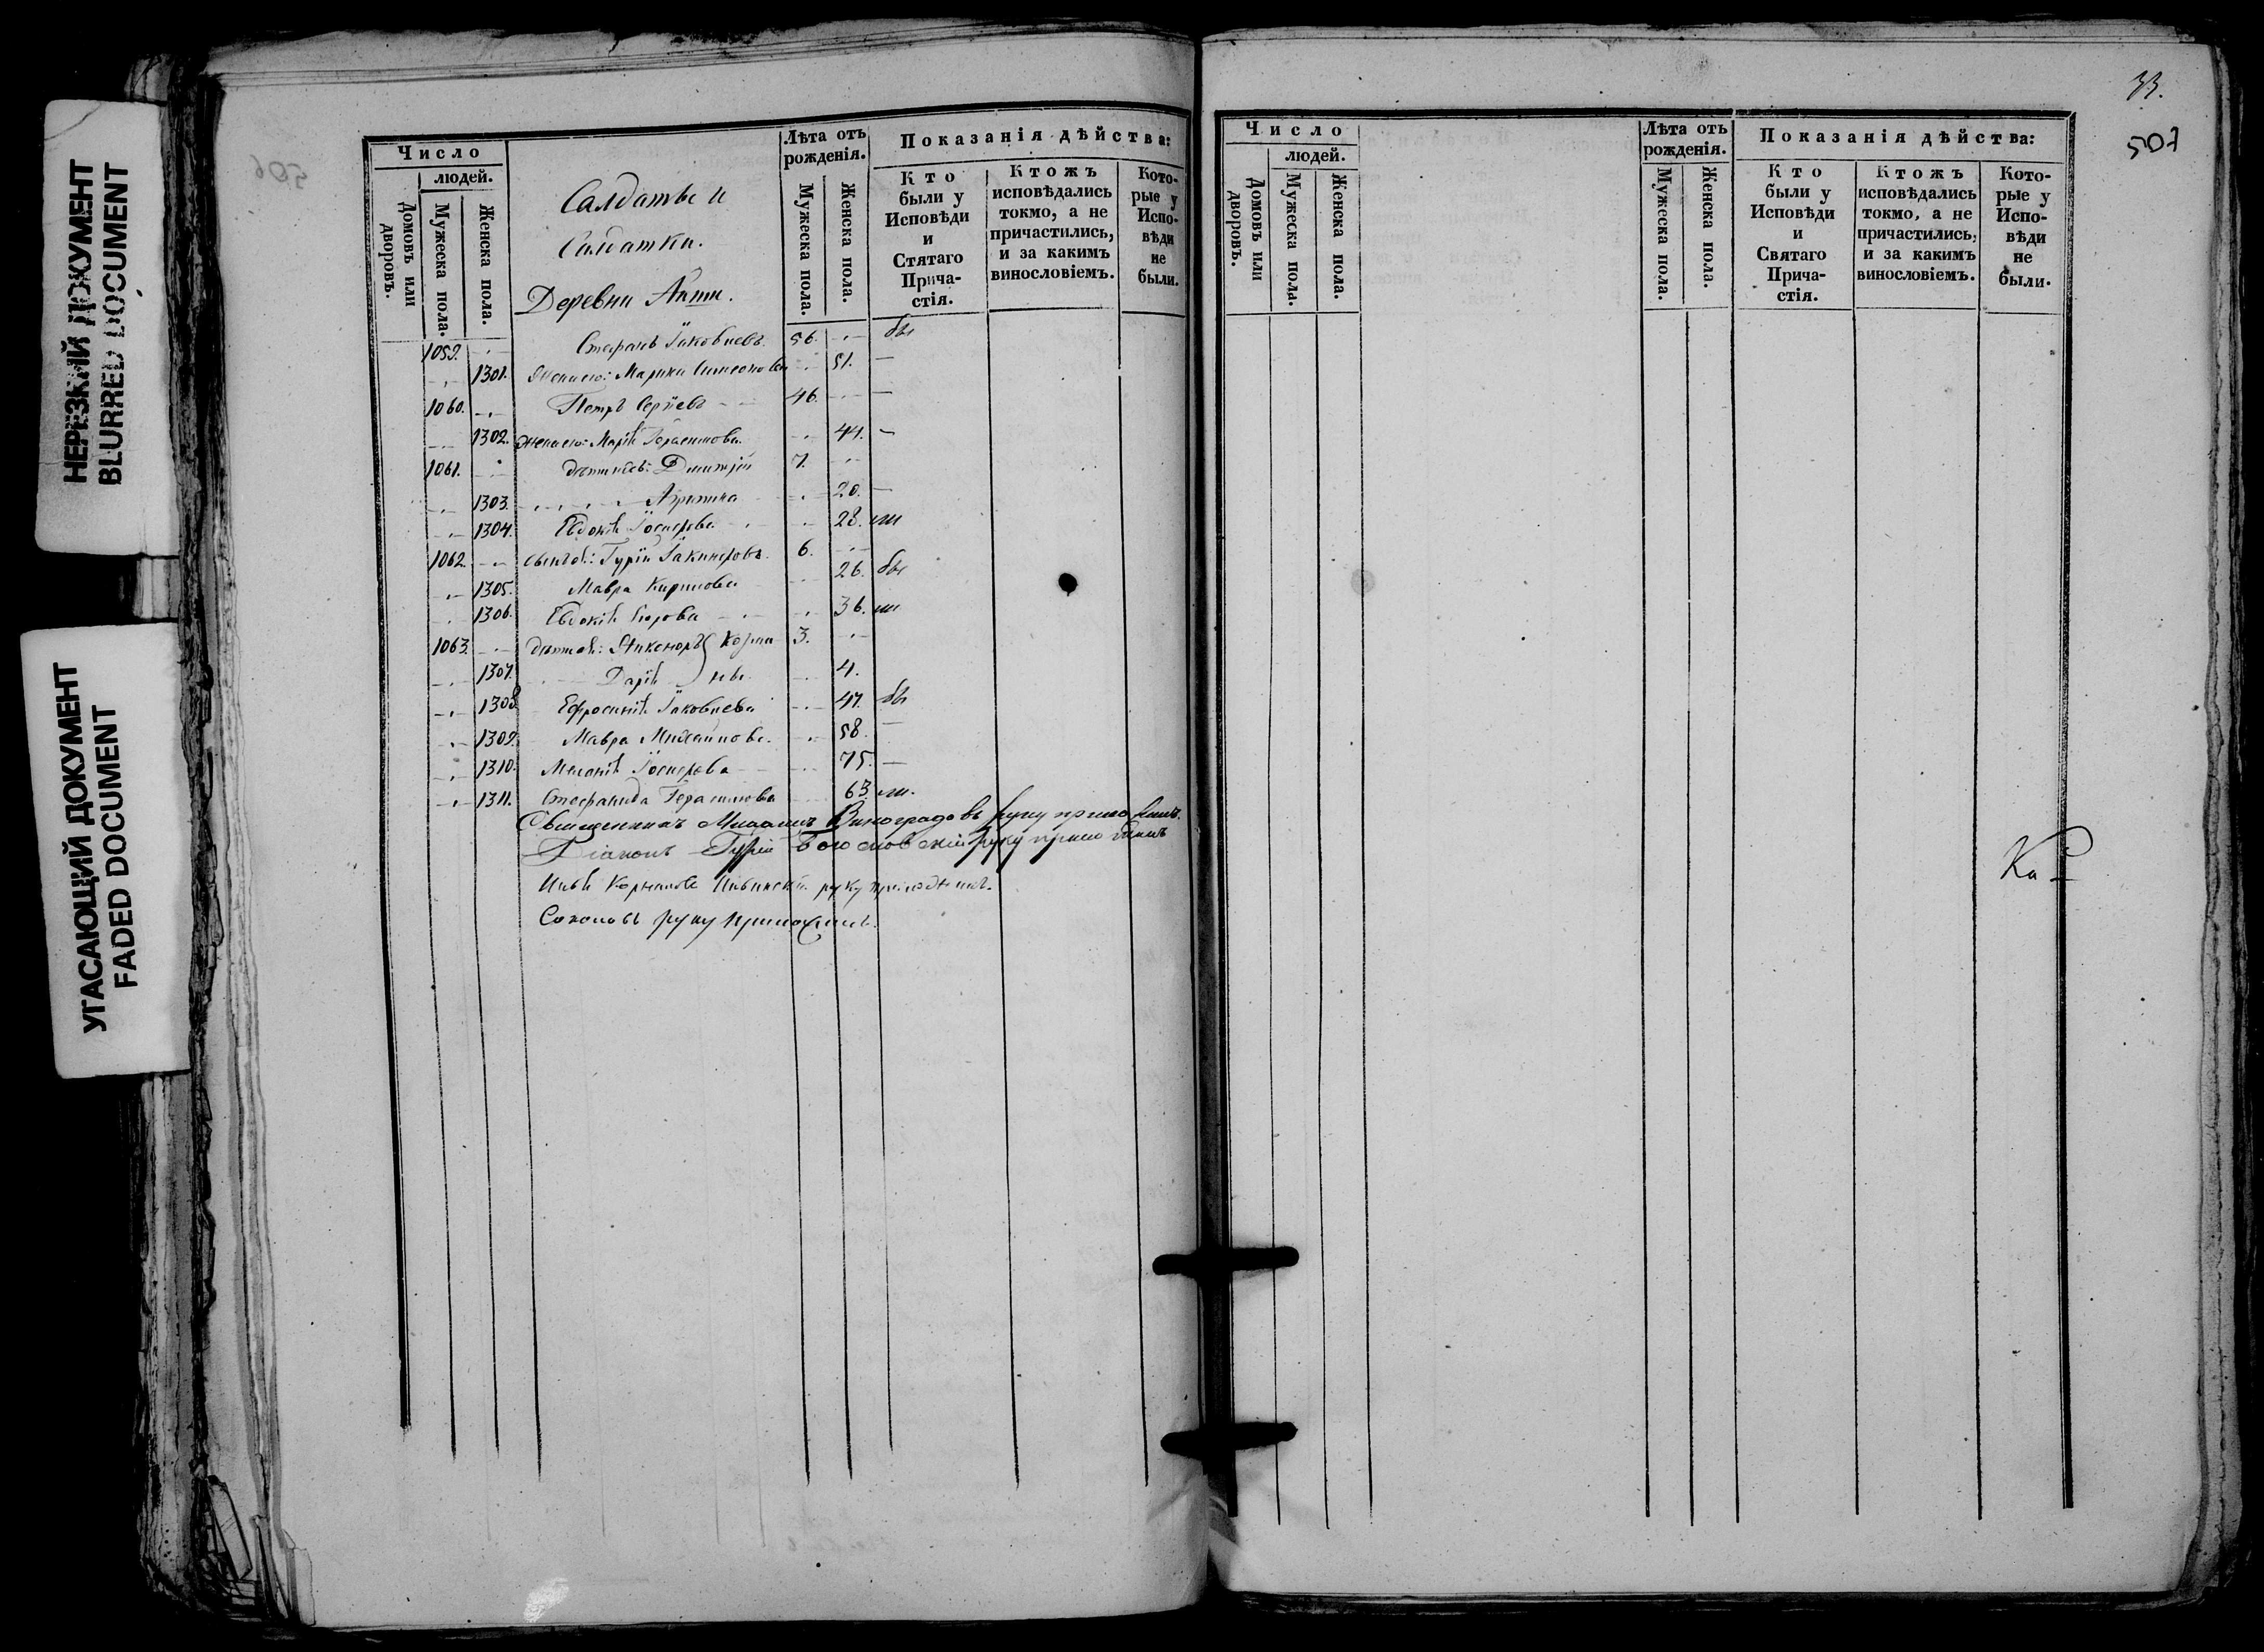 НЕРЕЗКИЙ ДОКУМЕНТ
BLURRED DOCUMENT
УГАСАЮЩИЙ ДОКУМЕНТ
FADED DOCUMENT
506
Число
людей.
Домовъ или дворовъ.
Мужеска пола.
Женска пола.
Салдаты и
Салдатки.
Деревни
Лѣта отъ рожденія.
Мужеска пола.
Женска пола.
Показанія дѣйства:
Кто были у Исповѣди и Стятаго Прича-стія.
Ктожъ исповѣдались токмо, а не причастились, и за какимъ винословіемъ.
Кото-рые у Испо-вѣди не были.
1059. Стефанъ Іаковлевъ 56. бы
1301. Жена его: Симеонова 51. —
1060. Петръ Сергіевъ 46. —
1302. Жена его: Марія Герасимова 44. —
1061. Дѣти ихъ: Димитрій 7.
1303. 20. —
1304. Евдокія Іосифова 28. ли
1062. сынъ ея: Гурій 6.
1305. Мавра Кирилова 26. бы
1306. Евдокія 36. ли
1063. дѣти ея: 3.
1307. Дарія 4.
1308. Ефросинія Іаковлева 47. бы
1309. Мавра Михаилова 58. —
1310. Іосифова 75. —
1311. Стефанида Герасимова 63. ли.
Священникъ Михаилъ Виноградовъ руку приложилъ.
Діаконъ Гурій Богословскій руку приложилъ
руку приложилъ.
Соколовъ руку приложилъ.
33.
507
Число
людей.
Домовъ или дворовъ.
Мужеска пола.
Женска пола.
Лѣта отъ рожденія.
Мужеска пола.
Женска пола.
Показанія дѣйства:
Кто были у Исповѣди и Святаго Прича-стія.
Ктожъ исповѣдались токмо, а не причастились, и за какимъ винословіемъ.
Кото-рые у Испо-вѣди не были.
Ка